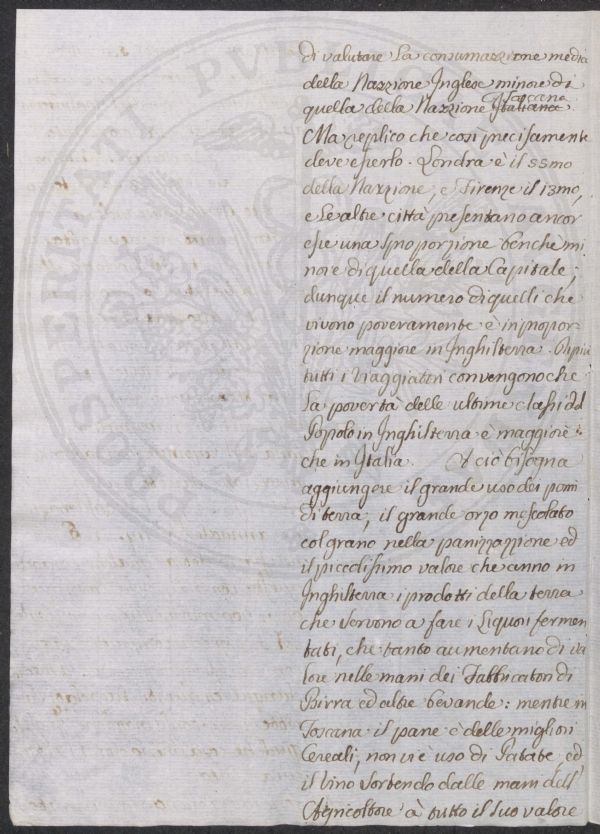 di valutare la consumazzione media
della Nazzione Inglese minore di
quella della Nazzione Italiana Toscana.
Ma replico che così precisamente
deve esserlo. Londra è il 55mo
della Nazzione, e Firenze il 13mo,
e le altre città presentano ancor
esse una sproporzione benche mi
nore di quella della Capitale;
dunque il numero di quelli che
vivono poveramente è in propor
zione maggiore in Inghilterra. Di più
tutti i Viaggiatori convengono che
la povertà delle ultime classi del
Popolo in Inghilterra è maggiore
che in Italia. A ciò bisogna
aggiungere il grande uso dei pomi
di terra, il grande orzo mescolato
col grano nella panizzazzione ed
il piccolissimo valore che anno in
Inghilterra i prodotti della terra
che servono a fare i Liquori fermen
tati, che tanto aumentano di va
lore nelle mani dei Fabbricatori di
Birra ed altre bevande: mentre in
Toscana il pane è delle migliori
Cereali, non vi è uso di Patate, ed
il Vino sortendo dalle mani dell'
Agricoltore à tutto il suo valore
PROSPERITATI PUBLICAE